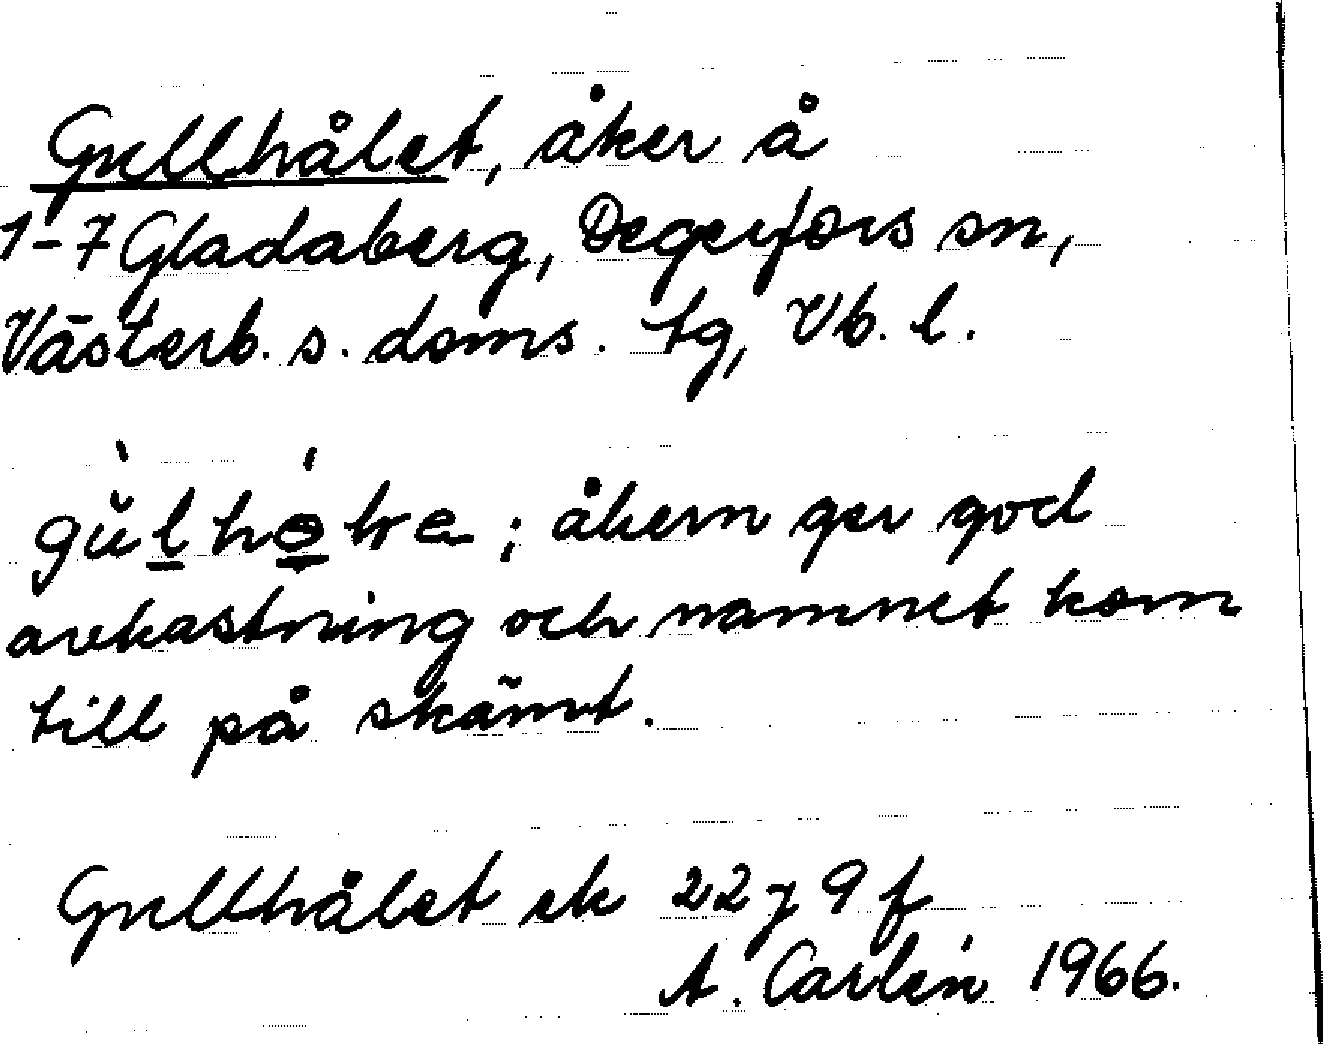 Gullhålet, åker å
1-7 Gladaberg, Degerfors sn,
Västerb. s. doms. tg, Vb. l.
åkern ger god
avkastning och namnet kom
till på skämt.
Gullhålet ek 22 J 9 f
A. Carlén 1966.